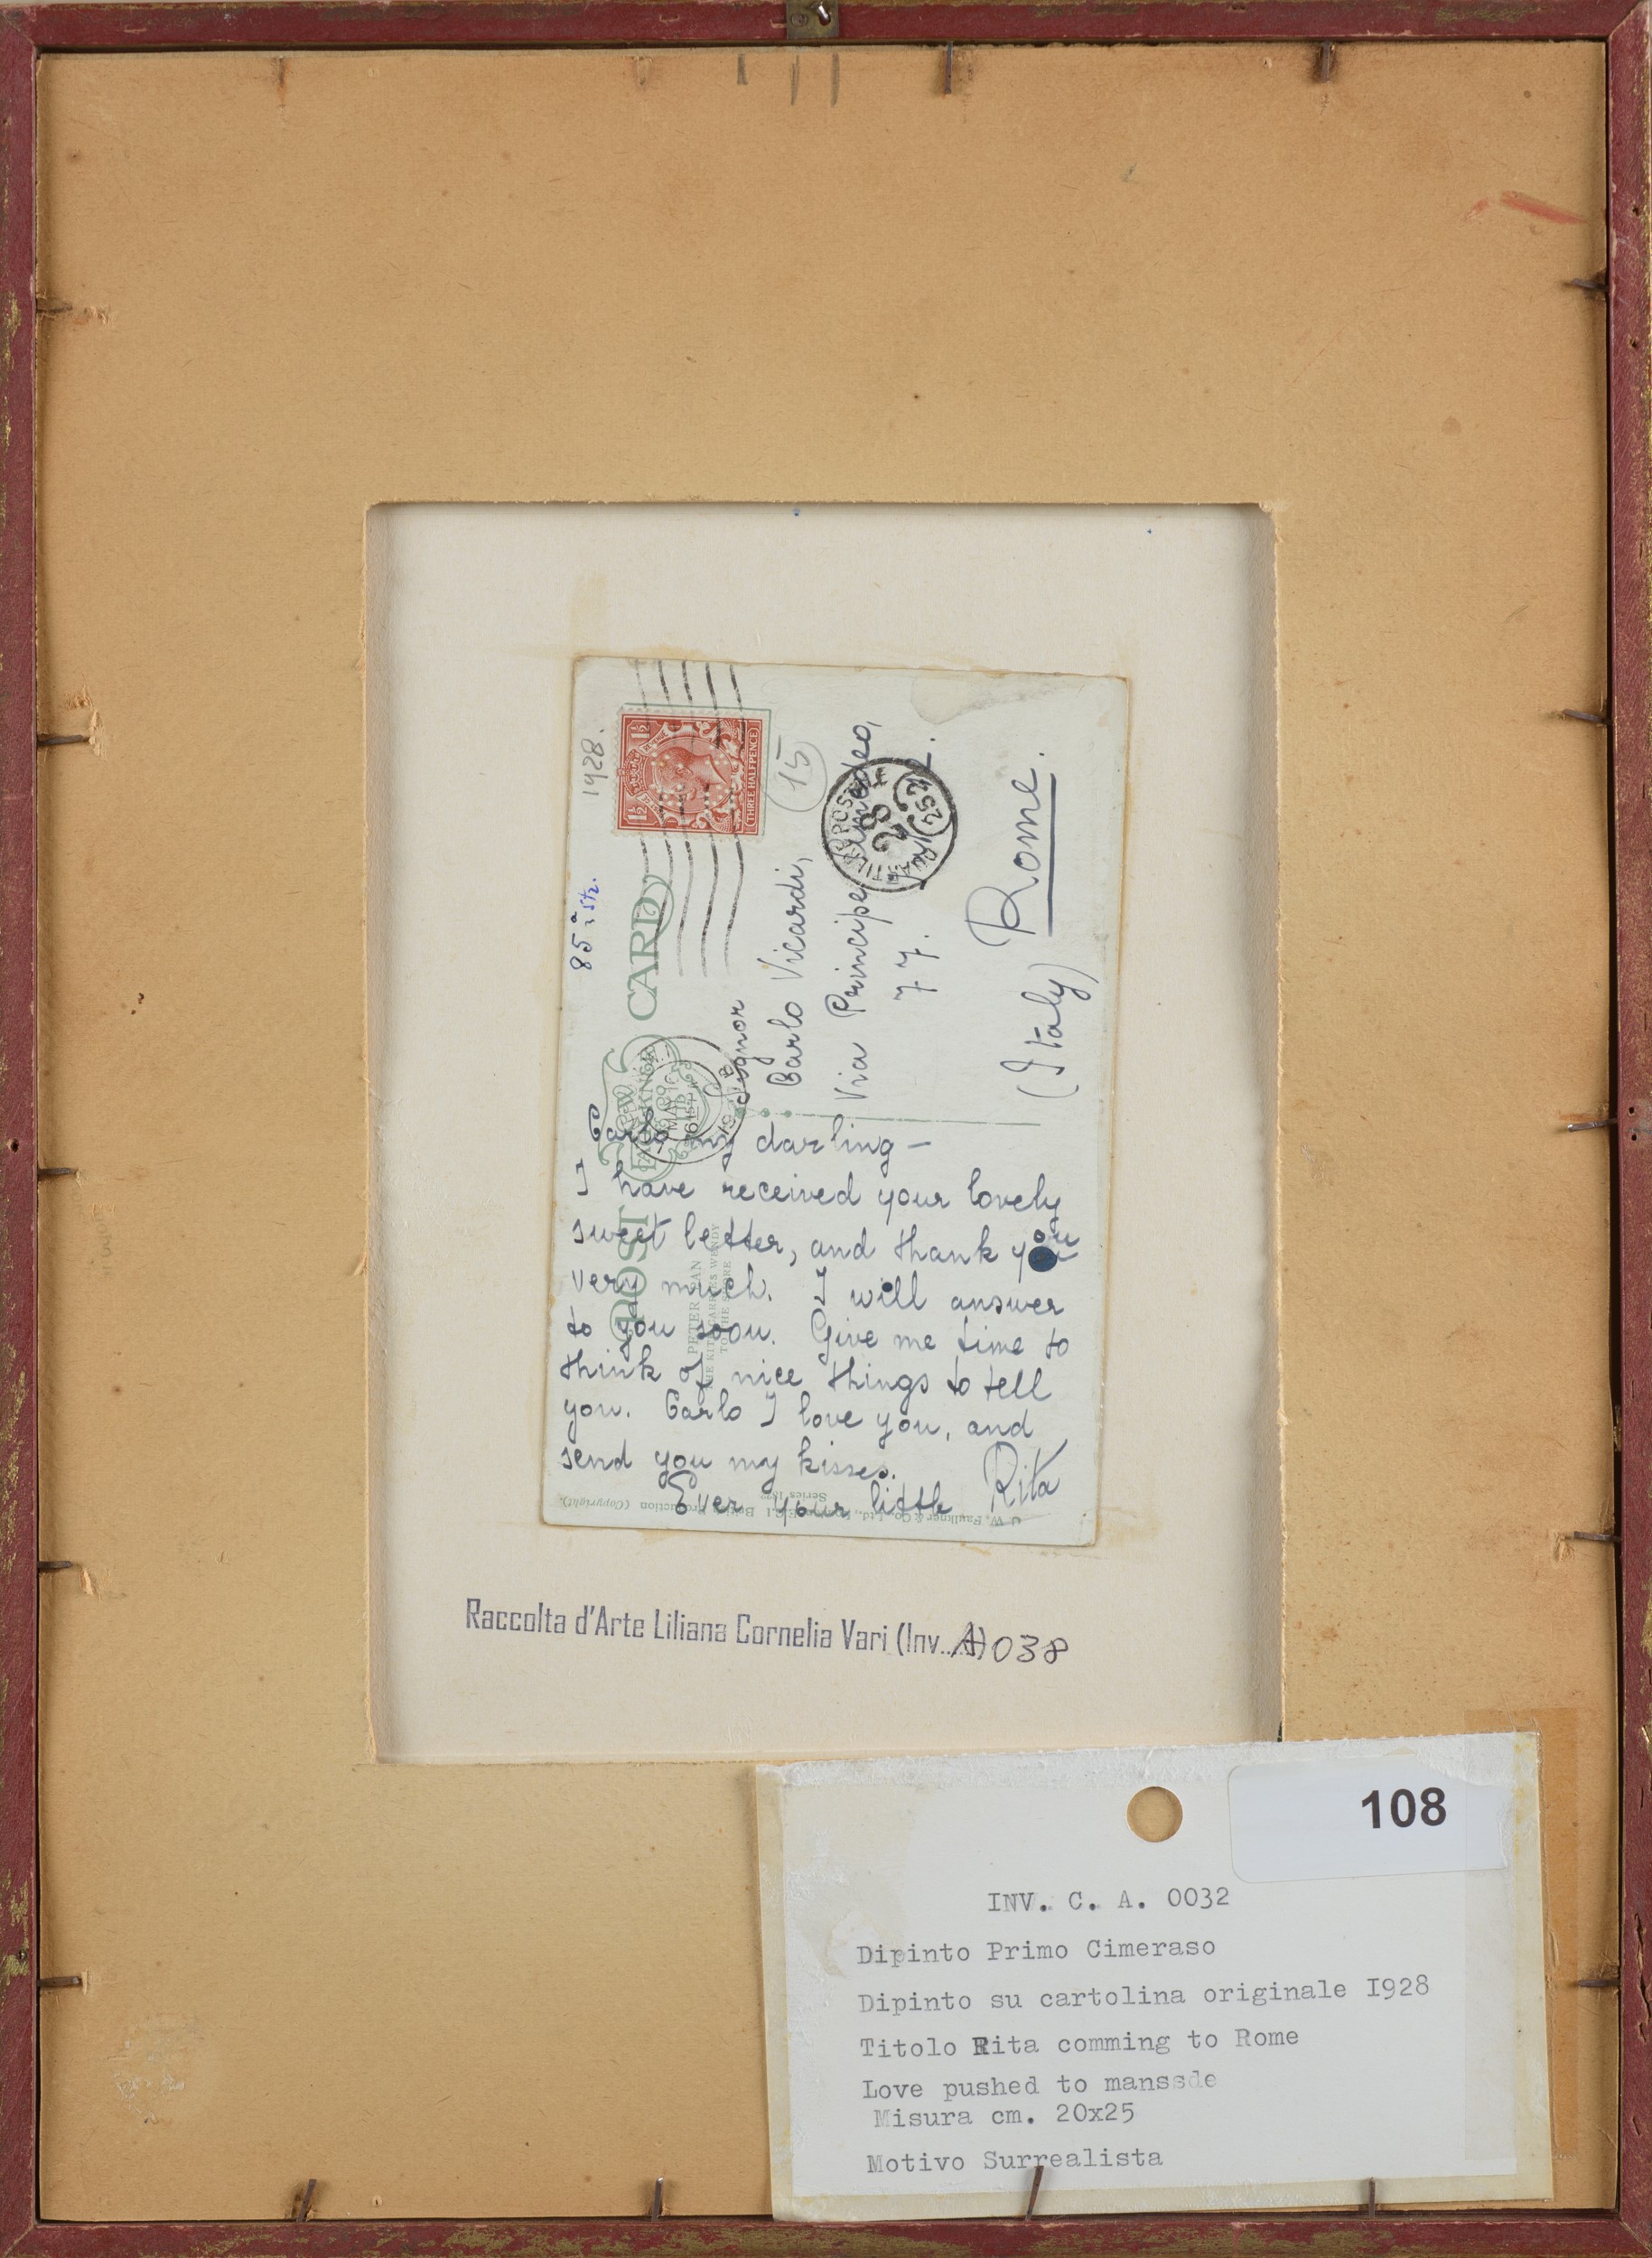 1928.
85
POST CARD
THREE HALFPENCE
1½ 1½
15
Signor
Carlo Vicardi,
Via Principe Amedeo,
77.
Rome.
(Italy)
Carlo my darling –
I have received your lovely
sweet letter, and thank you
very much. I will answer
to you soon. Give me time to
think of nice things to tell
you. Carlo I love you, and
send you my kisses.
Ever your little Rita
PETER PAN
THE KITE CARRIES WENDY
TO THE SHORE
C. W. Faulkner & Co., Ltd., London, E.C.1. British Production (Copyright).
Series
Raccolta d'Arte Liliana Cornelia Vari (Inv. A) 038
108
INV. C. A. 0032
Dipinto Primo Cimeraso
Dipinto su cartolina originale I928
Titolo Rita comming to Rome
Love pushed to manssde
Misura cm. 20x25
Motivo Surrealista